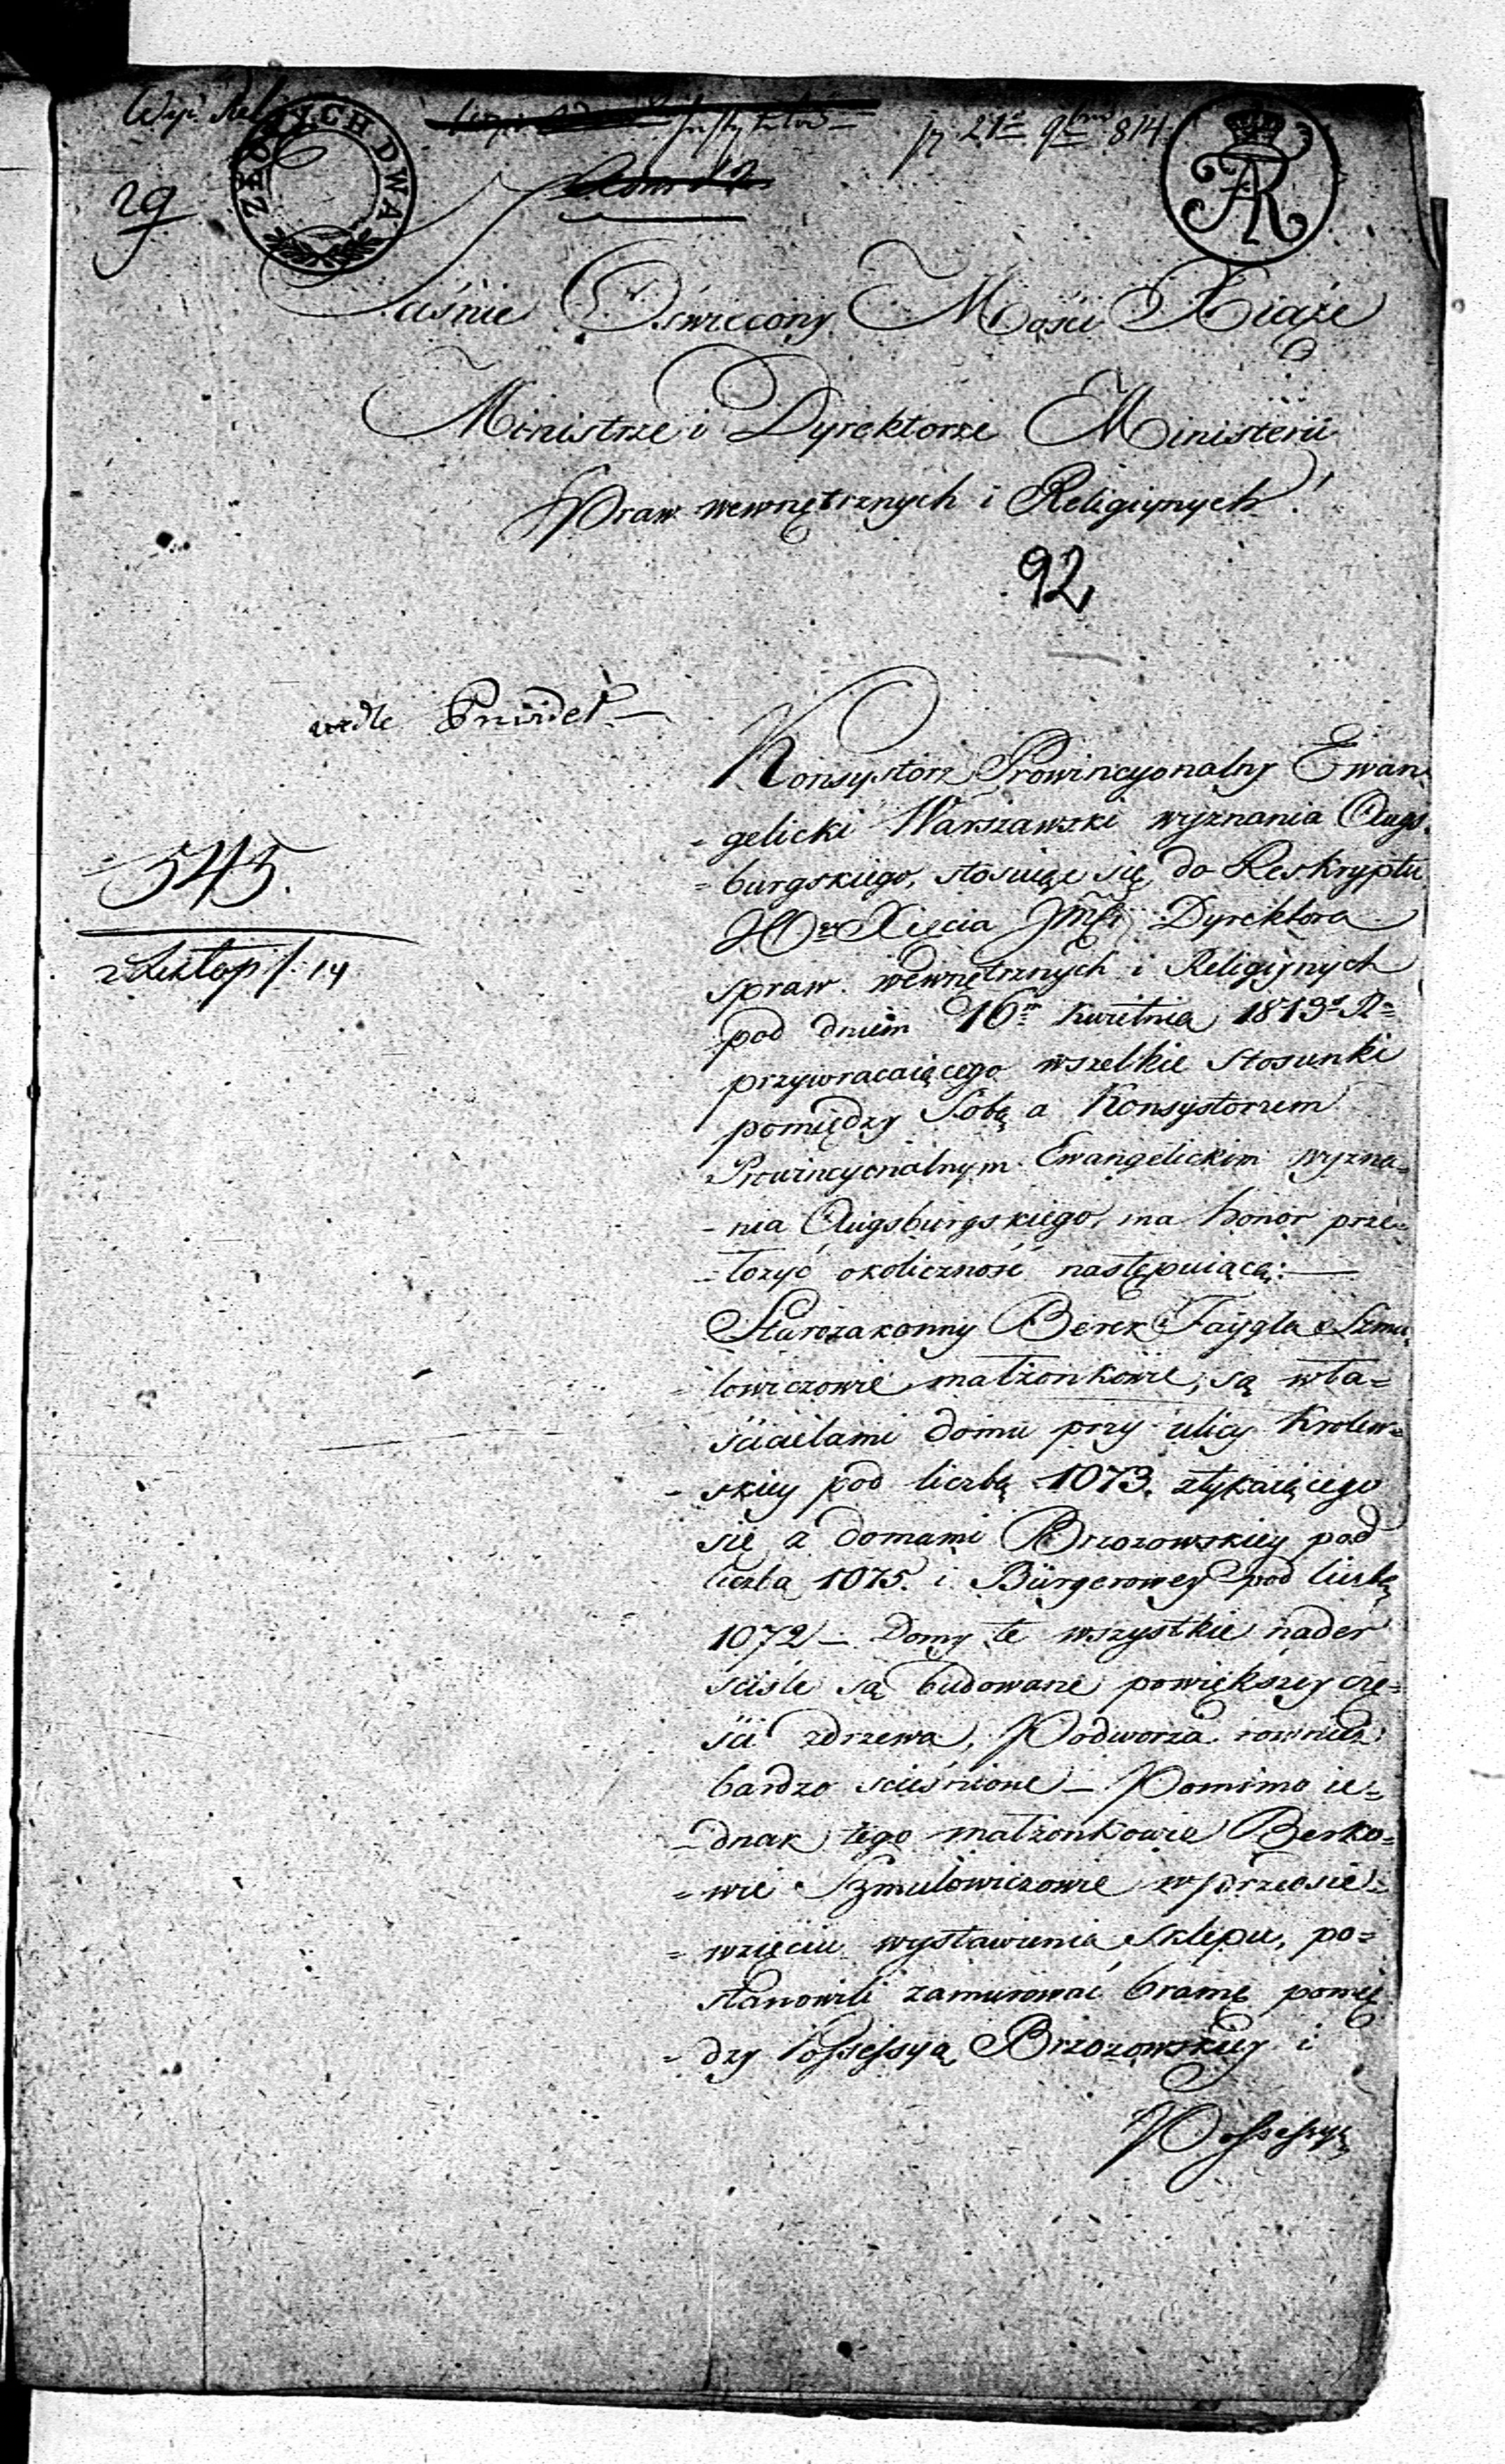 29
ZŁOTYCH DWA
pr 21 9bris 814
AR
Jaśnie Oświecony Mości Xiąże
Ministrze i Dyrektorze Ministerii
Spraw wewnętrznych i Religiynych!
92
545.
2 Listop /: 14
Konsystorz Prowincyonalny Ewan-
-gelicki Warszawski wyznania Augs-
=burgskiego, stosuiąc się do Reskryptu
JO Xięcia Jmci Dyrektora
spraw wewnętrznych i Religiynych
pod dniem 16m kwietnia 1813 R=
przywracaiącego wszelkie stosunki
pomiędzy Sobą a Konsystorzem
Prowincyonalnym Ewangelickim wyzna=
-nia Augsburgskiego, ma honor prze=
-łożyć okoliczność następuiącą:—
Starozakonny Berek Faygla Szmu-
-lowiczowie małżonkowie, są wła=
ścicielami domu przy ulicy Krolew=
-skiey pod liczbą 1073. stykaiącego
się z domami Brzozowskiey pod
liczba 1075. i Bürgerowey pod liczbą
1072 — Domy te wszystkie nader
scisle są budowane powiększey czę=
ści zdrzewa, Podworza rownież
bardzo scieśnione — Pomimo ie=
-dnak tego małżonkowie Berko=
=wie Szmulowiczowie w przedsie=
=wzięciu wystawienia Sklepu, po=
stanowili zamurować bramę pomię
=dzy Possessyą Brzozowskiey i
Possessyą